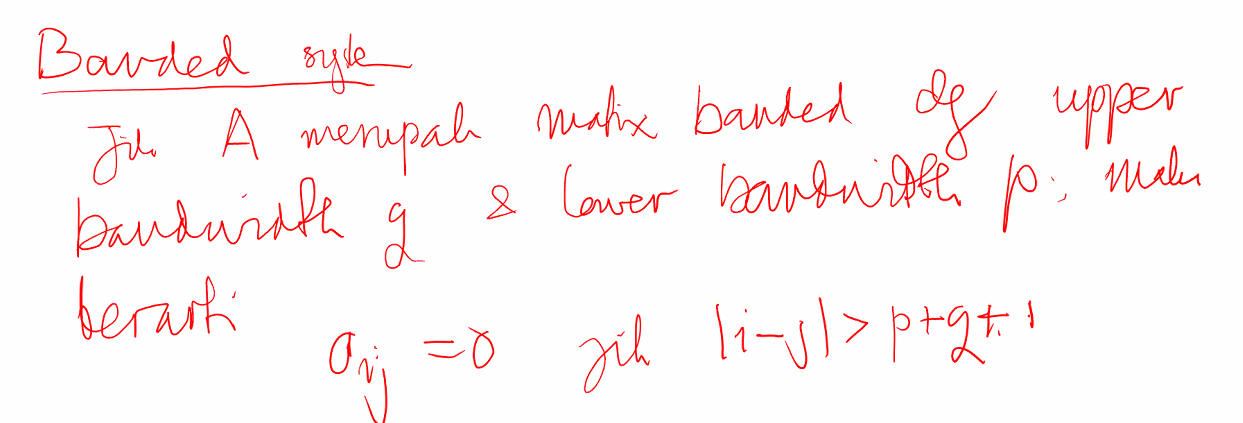 Banded syste
Jik A merupak matix banded dg upper
bandwidth q & lower bandwidth p, maka
berarti
a_ij = 0 jik |i-j| > p+q+1